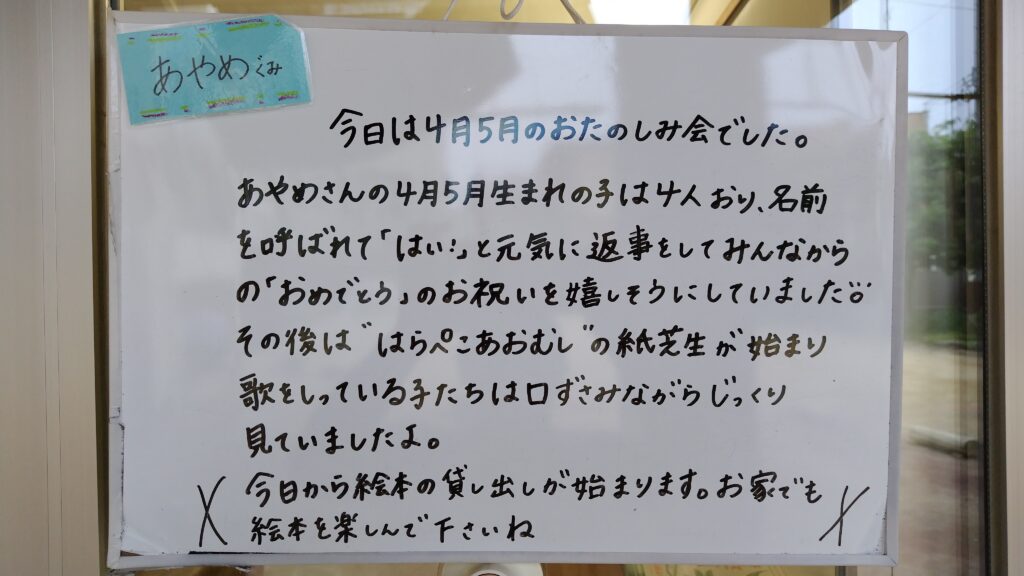 あやめぐみ
今日は4月5月のおたのしみ会でした。
あやめさんの4月5月生まれの子は4人おり、名前
を呼ばれて「はい!」と元気に返事をしてみんなから
の「おめでとう」のお祝いを嬉しそうにしていました
その後は"はらぺこあおむし"の紙芝生が始まり
歌をしっている子たちは口ずさみながらじっくり
見ていましたよ。
今日から絵本の貸し出しが始まります。お家でも
絵本を楽しんで下さいね